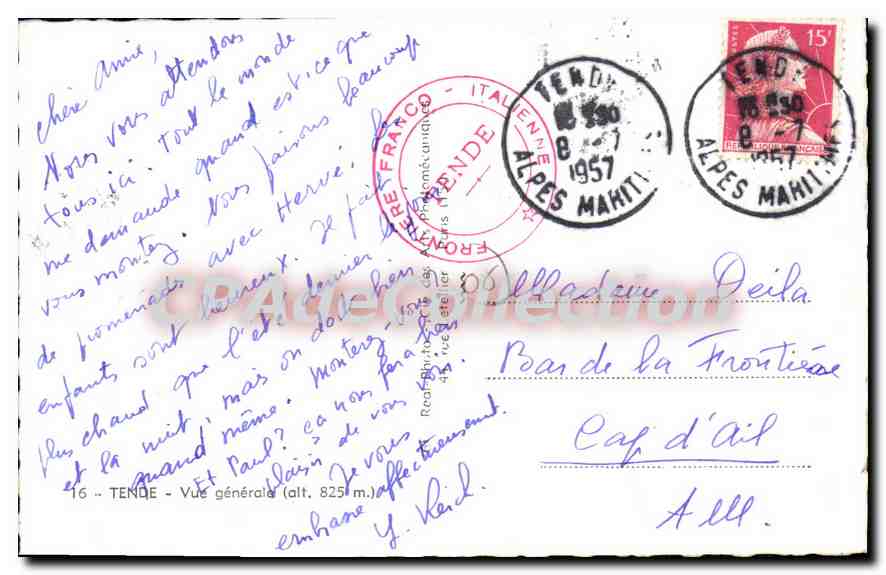 Chère Amie,
Nous vous attendons
tous ici. Tout le monde
me demande quand est-ce que
vous montez. Nous faisons beaucoup
de promenades avec Hervé, les
enfants sont heureux. Il fait
plus chaud que l'été dernier le jour
et la nuit, mais on dort bien
quand même. Montez-vous
Et Paul? ça nous fera bien
plaisir de vous voir.
Je vous
embrasse affectueusement.
16 - TENDE - Vue générale (alt. 825 m.)
Réal-Photo, Cie des Arts Photomécaniques
44, rue Letellier - Paris
FRONTIÈRE FRANCO - ITALIENNE
TENDE
TENDE
8 -7
1957
ALPES MARIT
TENDE
8 -7
1957
ALPES MARITIMES
15F
POSTES
REPUBLIQUE FRANCAISE
06
Madame Deila
Bar de la Frontière
Cap d'Ail
A M.
CPADeCollection